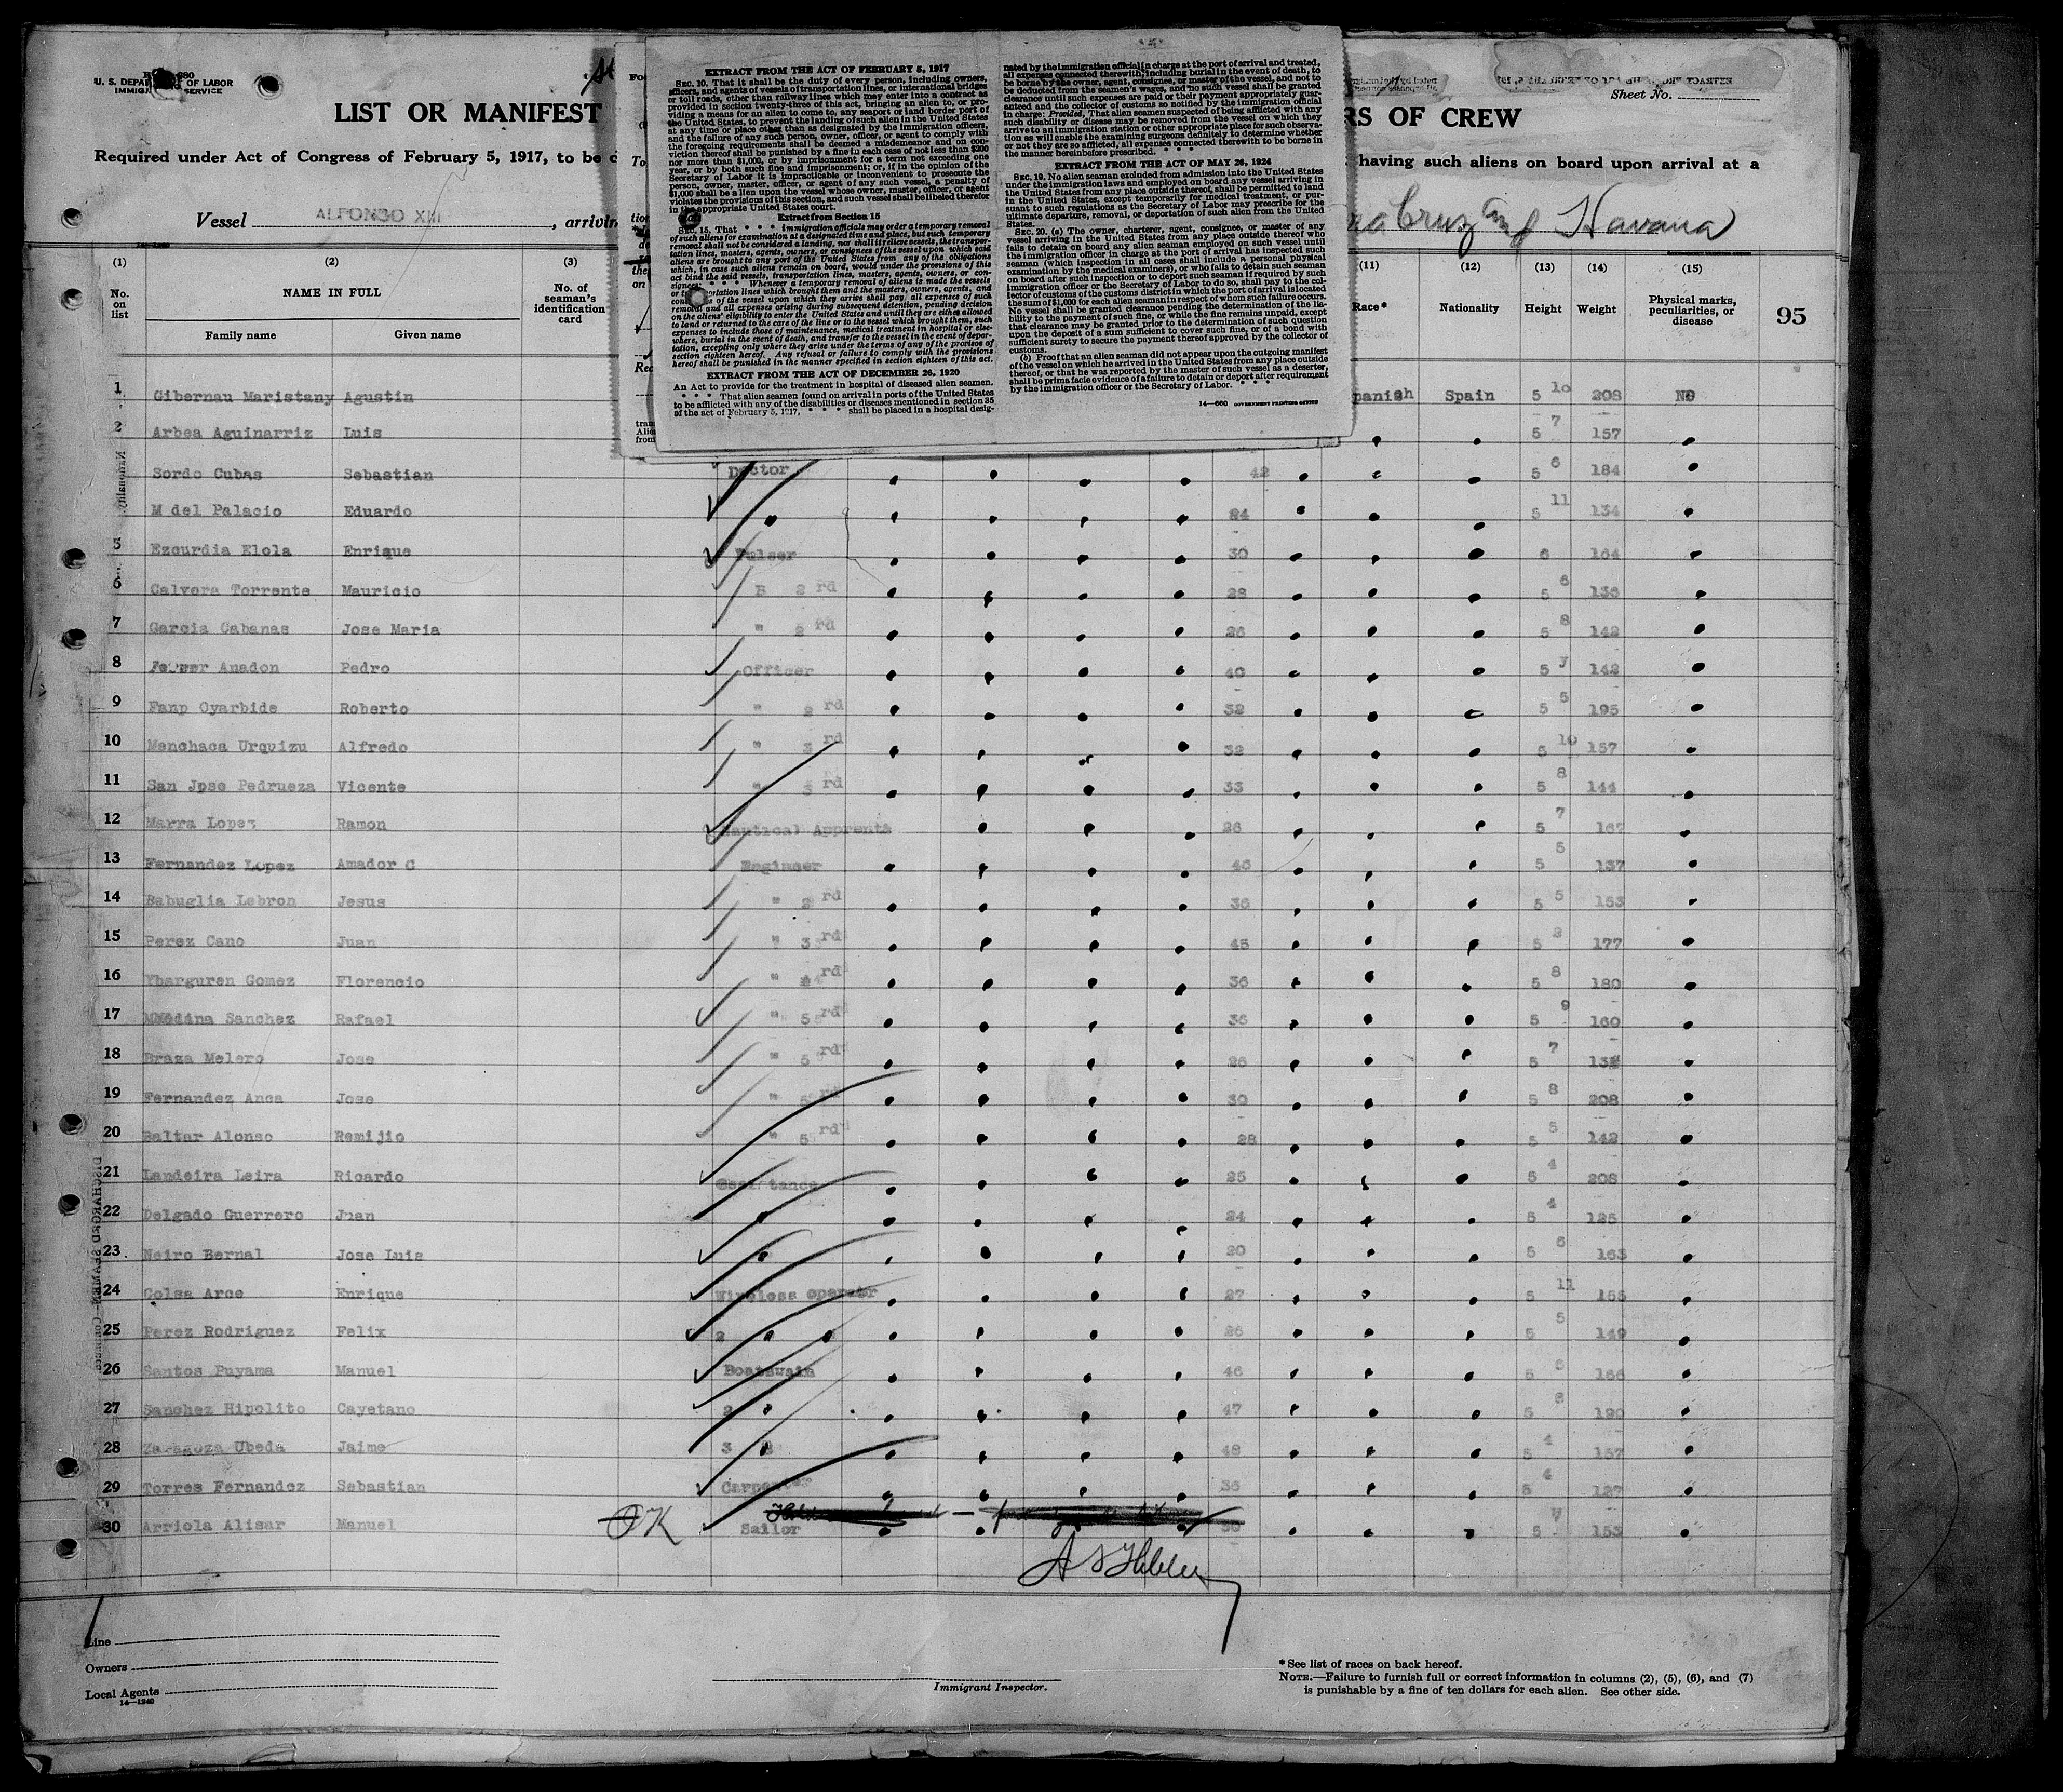 U. S. DEPARTMENT OF LABOR
IMMIGRATION SERVICE
LIST OR MANIFEST
RS OF CREW
Sheet No.
Required under Act of Congress of February 5, 1917, to be d
having such aliens on board upon arrival at a
Vessel ALFONSO XIII, arrivin
Cruz and Havana
EXTRACT FROM THE ACT OF FEBRUARY 5, 1917
SEC. 10. That it shall be the duty of every person, including owners,
officers, and agents of vessels of transportation lines, or international bridges
or toll roads, other than railway lines which may enter into a contract as
provided in section twenty-three of this act, bringing an alien to, or pro-
viding a means for an alien to come to, any seaport or land border port of
the United States, to prevent the landing of such alien in the United States
at any time or place other than as designated by the immigration officers,
and the failure of any such person, owner, officer, or agent to comply with
the foregoing requirements shall be deemed a misdemeanor and on con-
viction thereof shall be punished by a fine in each case of not less than $200
nor more than $1,000, or by imprisonment for a term not exceeding one
year, or by both such fine and imprisonment; or, if in the opinion of the
Secretary of Labor it is impracticable or inconvenient to prosecute the
person, owner, master, officer, or agent of any such vessel, a penalty of
$1,000 shall be a lien upon the vessel whose owner, master, officer, or agent
violates the provisions of this section, and such vessel shall be libeled therefor
in the appropriate United States court.
Extract from Section 15
SEC. 15. That * * * immigration officials may order a temporary removal
of such aliens for examination at a designated time and place, but such temporary
removal shall not be considered a landing, nor shall it relieve vessels, the transpor-
tation lines, masters, agents, owners, or consignees of the vessel upon which said
aliens are brought to any port of the United States from any of the obligations
which, in case such aliens remain on board, would under the provisions of this
act bind the said vessels, transportation lines, masters, agents, owners, or con-
signees: * * * Whenever a temporary removal of aliens is made the vessels
or transportation lines which brought them and the masters, owners, agents, and
of the vessel upon which they arrive shall pay all expenses of such
removal and all expenses arising during subsequent detention, pending decision
on the aliens' eligibility to enter the United States and until they are either allowed
to land or returned to the care of the line or to the vessel which brought them, such
expenses to include those of maintenance, medical treatment in hospital or else-
where, burial in the event of death, and transfer to the vessel in the event of depor-
tation, excepting only where they arise under the terms of any of the provisos of
section eighteen hereof. Any refusal or failure to comply with the provisions
hereof shall be punished in the manner specified in section eighteen of this act.
EXTRACT FROM THE ACT OF DECEMBER 26, 1920
An Act to provide for the treatment in hospital of diseased alien seamen.
* * * That alien seamen found on arrival in ports of the United States
to be afflicted with any of the disabilities or diseases mentioned in section 35
of the act of February 5, 1917, * * * shall be placed in a hospital desig-
nated by the immigration official in charge at the port of arrival and treated,
all expenses connected therewith, including burial in the event of death, to
be borne by the owner, agent, consignee, or master of the vessel, and not to
be deducted from the seamen's wages, and no such vessel shall be granted
clearance until such expenses are paid or their payment appropriately guar-
anteed and the collector of customs so notified by the immigration official
in charge: Provided, That alien seamen suspected of being afflicted with any
such disability or disease may be removed from the vessel on which they
arrive to an immigration station or other appropriate place for such observa-
tion as will enable the examining surgeons definitely to determine whether
or not they are so afflicted, all expenses connected therewith to be borne in
the manner hereinbefore prescribed. * * *
EXTRACT FROM THE ACT OF MAY 26, 1924
SEC. 19. No alien seaman excluded from admission into the United States
under the immigration laws and employed on board any vessel arriving in
the United States from any place outside thereof, shall be permitted to land
in the United States, except temporarily for medical treatment, or pur-
suant to such regulations as the Secretary of Labor may prescribe for the
ultimate departure, removal, or deportation of such alien from the United
States.
SEC. 20. (a) The owner, charterer, agent, consignee, or master of any
vessel arriving in the United States from any place outside thereof who
fails to detain on board any alien seaman employed on such vessel until
the immigration officer in charge at the port of arrival has inspected such
seaman (which inspection in all cases shall include a personal physical
examination by the medical examiners), or who fails to detain such seaman
on board after such inspection or to deport such seaman if required by such
immigration officer or the Secretary of Labor to do so, shall pay to the col-
lector of customs of the customs district in which the port of arrival is located
the sum of $1,000 for each alien seaman in respect of whom such failure occurs.
No vessel shall be granted clearance pending the determination of the lia-
bility to the payment of such fine, or while the fine remains unpaid, except
that clearance may be granted prior to the determination of such question
upon the deposit of a sum sufficient to cover such fine, or of a bond with
sufficient surety to secure the payment thereof approved by the collector of
customs.
(b) Proof that an alien seaman did not appear upon the outgoing manifest
of the vessel on which he arrived in the United States from any place outside
thereof, or that he was reported by the master of such vessel as a deserter,
shall be prima facie evidence of a failure to detain or deport after requirement
by the immigration officer or the Secretary of Labor. * * *
14—660 GOVERNMENT PRINTING OFFICE
(1) (2) (3) (11) (12) (13) (14) (15)
No. on list
NAME IN FULL
Family name Given name
No. of seaman's identification card
Race* Nationality Height Weight Physical marks, peculiarities, or disease
95
1 Gibernau Maristany Agustin panish Spain 5 10 208 No
2 Arbea Aguinarriz Luis 5 7 157
Sordo Cubas Sebastian Doctor 42 5 6 184
M del Palacio Eduardo 24 5 11 134
5 Ezcurdia Elola Enrique Pulser 30 6 164
6 Calvera Torrente Mauricio B 2 rd 28 5 6 136
7 Garcia Cabanas Jose Maria " 2 rd 26 5 8 142
8 Anadon Pedro Officer 40 5 7 142
9 Fanp Oyarbide Roberto " 2 rd 32 5 5 195
10 Menchaca Urquizu Alfredo " 3 rd 32 5 10 157
11 San Jpse Pedrueza Vicente " 3 rd 33 5 8 144
12 Marra Lopez Ramon Nautical Apprenta 26 5 7 167
13 Fernandez Lopez Amador C Engineer 46 5 5 137
14 Babuglia Lebron Jesus " 2 rd 36 5 5 153
15 Perez Cano Juan " 3 rd 45 5 2 177
16 Ybarguren Gomez Florencio " 4 rd 36 5 8 180
17 Medina Sanchez Rafael " 5 rd 36 5 9 160
18 Braza Melero Jose " 5 rd 26 5 7
19 Fernandez Anca Jose " 5 rd 30 5 8 208
20 Baltar Alonso Remijio " 5 rd 28 5 5 142
21 Landeira Leira Ricardo 25 5 4 208
22 Delgado Guerrero Juan 24 5 4 125
23 Neiro Bernal Jose Luis " 20 5 6 163
24 Colsa Arce Enrique Wireless operator 27 5 11 155
25 Perez Rodriguez Felix 2 " " 26 5 5 149
26 Santos Puyama Manuel Boatswain 46 5 5 166
27 Sanchez Hipolito Cayetano 2 " 47 5 6 190
28 Zaragoza Ubeda Jaime 3 " 48 5 4 157
29 Torres Fernandez Sebastian Carpenter 36 5 4 127
30 Arriola Alisar Manuel OK Sailor 36 5 7 153
Line
Owners
Local Agents
14—1240
Immigrant Inspector.
*See list of races on back hereof.
NOTE.—Failure to furnish full or correct information in columns (2), (5), (6), and (7)
is punishable by a fine of ten dollars for each alien. See other side.